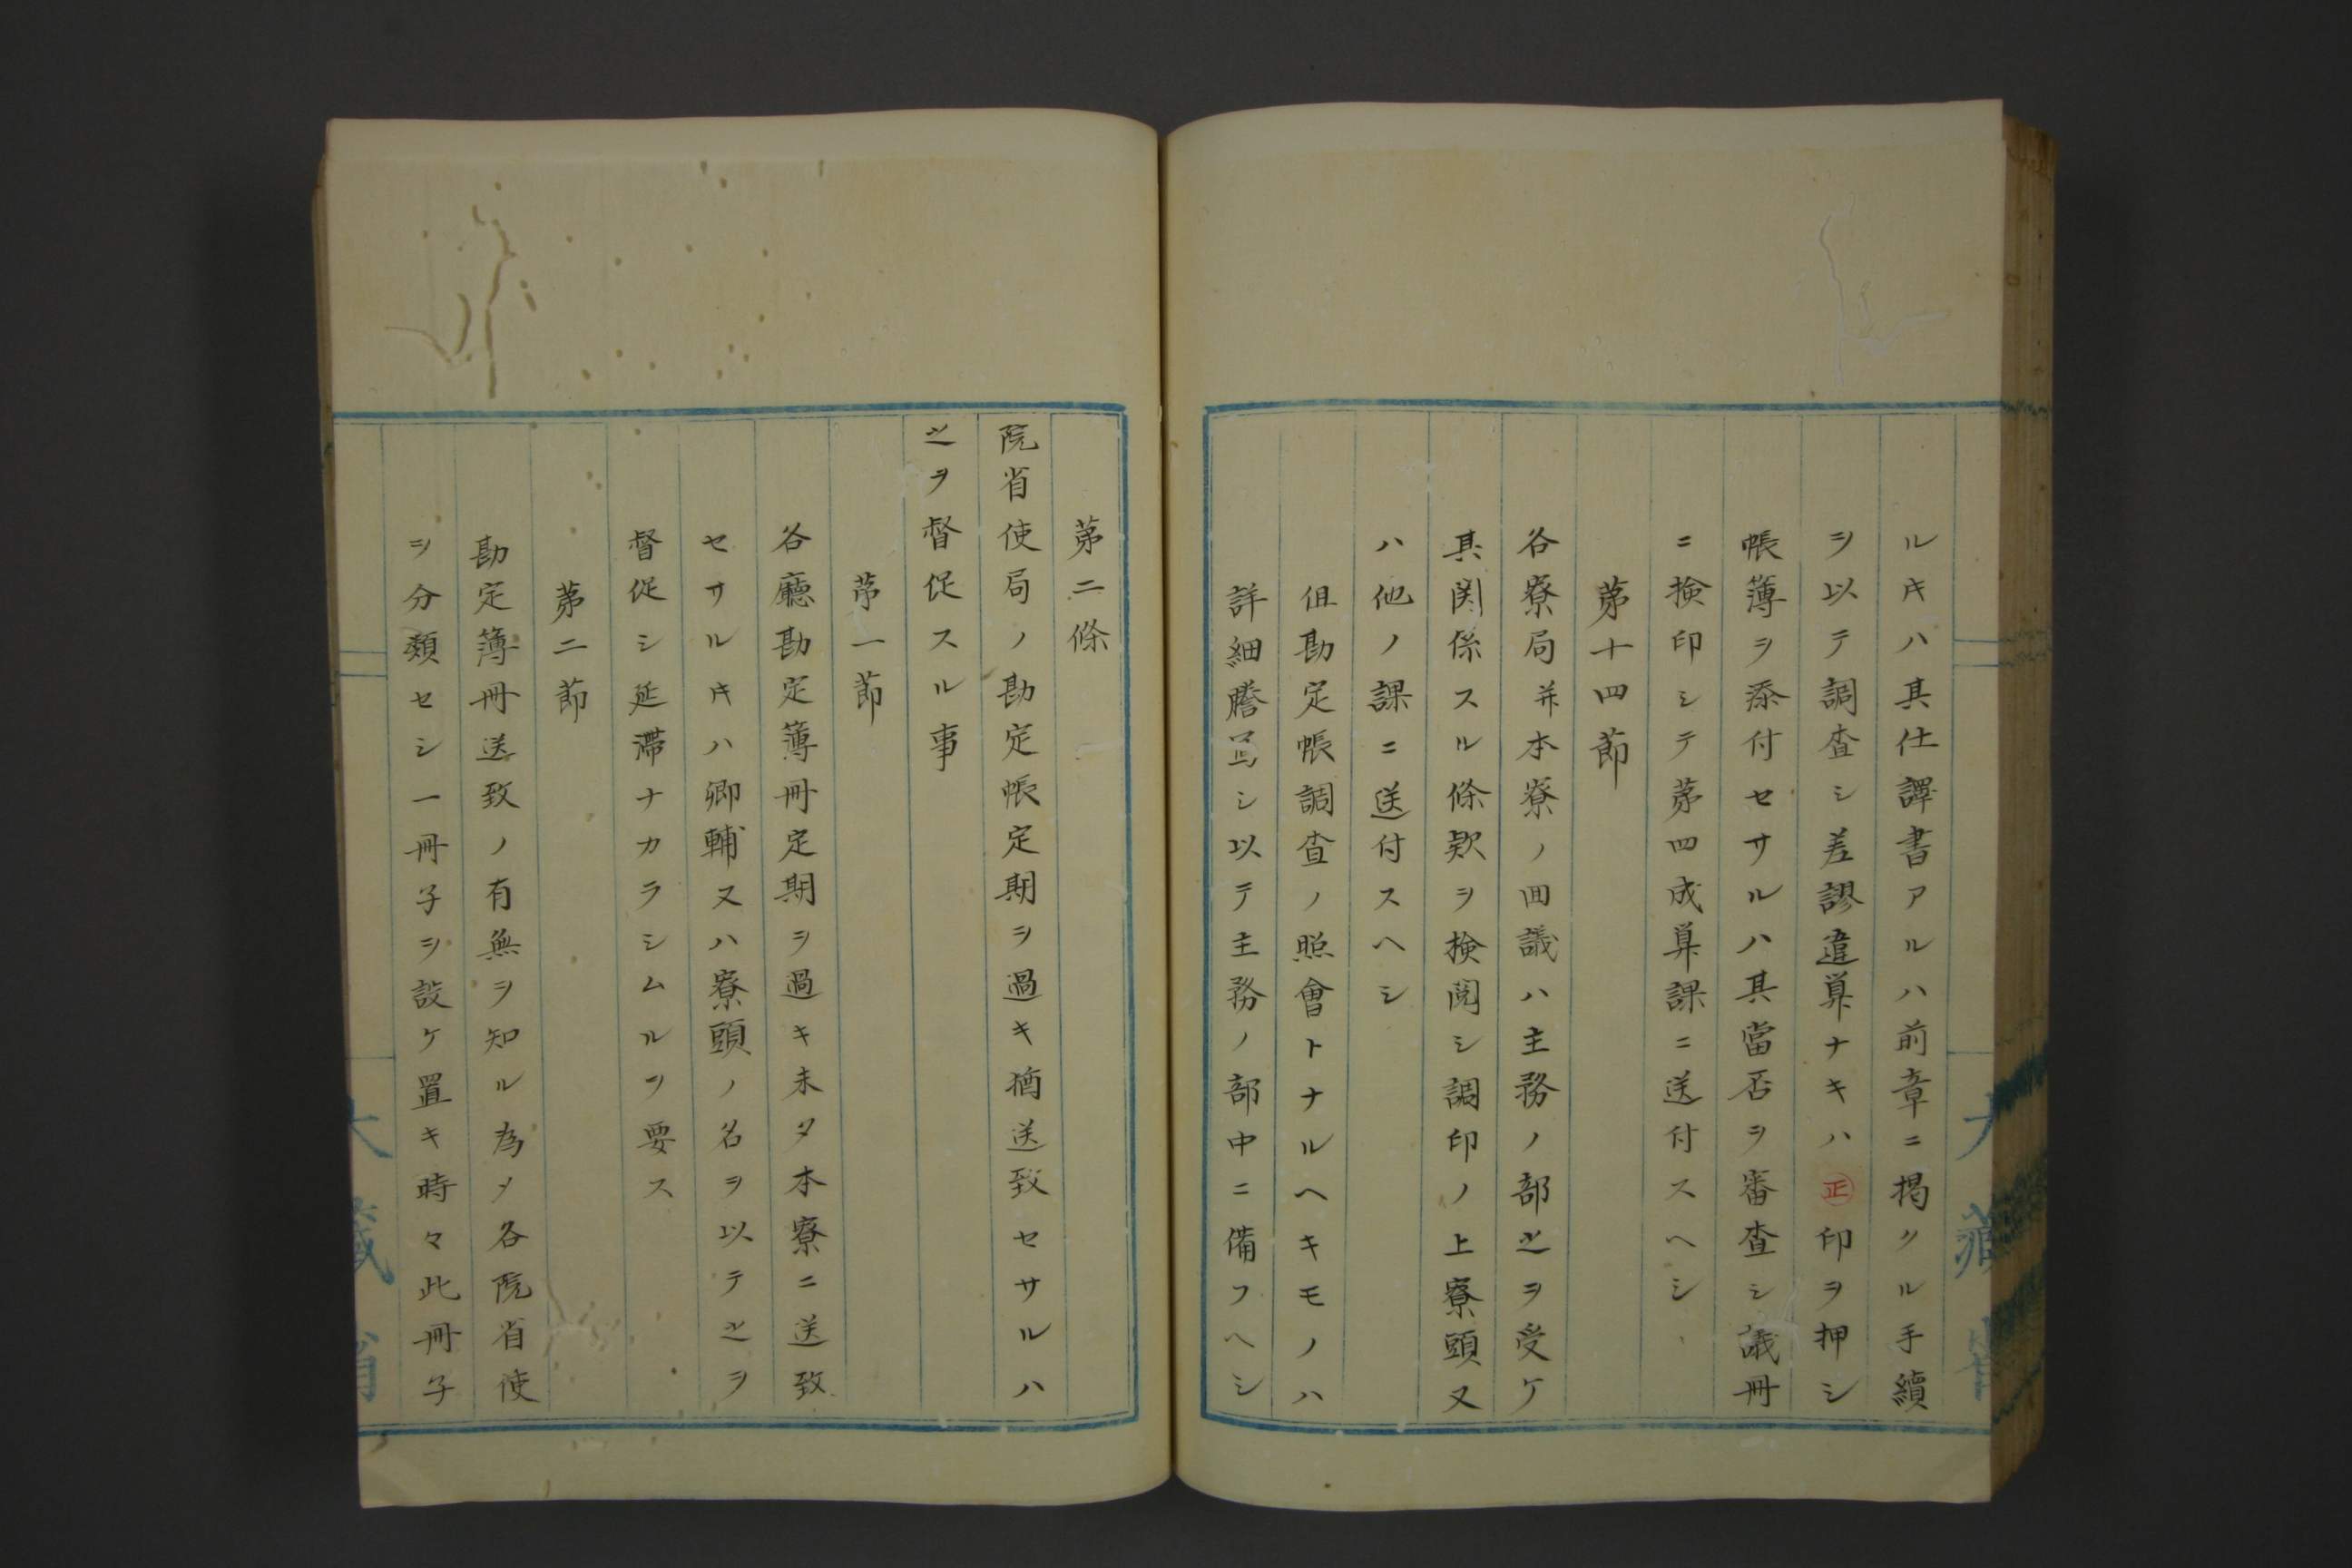 ルキハ其仕譯書アルハ前章ニ掲クル手續
ヲ以テ調査シ差謬違算ナキハ㊣印ヲ押シ
帳簿ヲ添付セサルハ其當否ヲ審査シ議冊
ニ検印シテ第四成算課ニ送付スヘシ
第十四節
各寮局并本寮ノ回議ハ主務ノ部之ヲ受ケ
其関係スル條款ヲ検閲シ調印ノ上寮頭又
ハ他ノ課ニ送付スヘシ
但勘定帳調査ノ照會トナルヘキモノハ
詳細謄写シ以テ主務ノ部中ニ備フヘシ
第二條
院省使局ノ勘定帳定期ヲ過キ猶送致セサルハ
之ヲ督促スル事
第一節
各廳勘定簿冊定期ヲ過キ未タ本寮ニ送致
セサルキハ卿輔又ハ寮頭ノ名ヲ以テ之ヲ
督促シ延滞ナカラシムルヲ要ス
第二節
勘定簿冊送致ノ有無ヲ知ル為メ各院省使
ヲ分類セシ一冊子ヲ設ケ置キ時々此冊子
大藏省